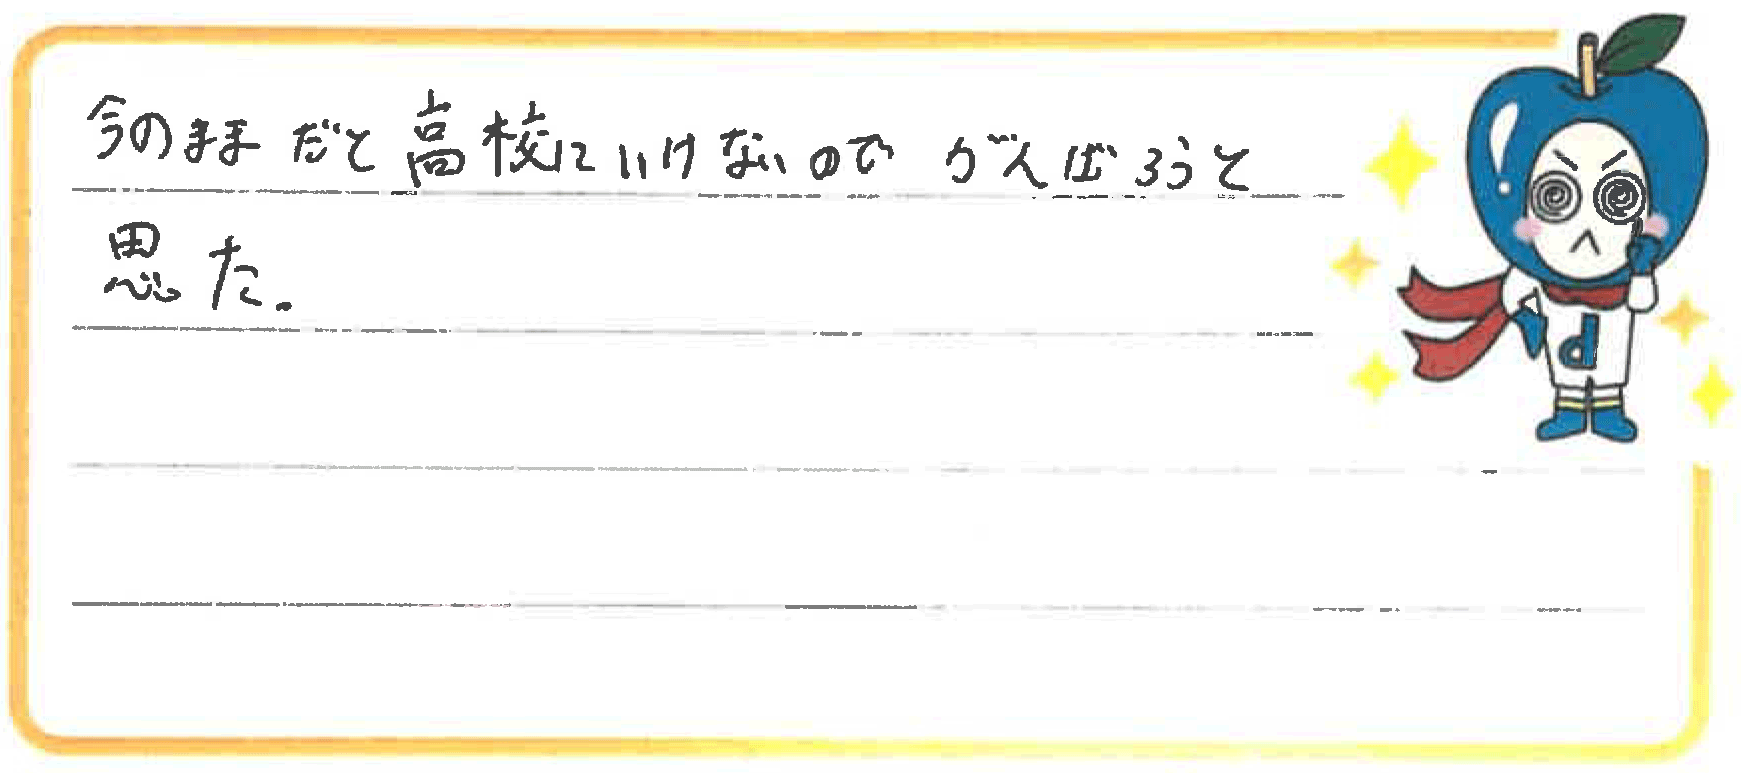 今のままだと高校にいけないのでがんばろうと
思た。
d